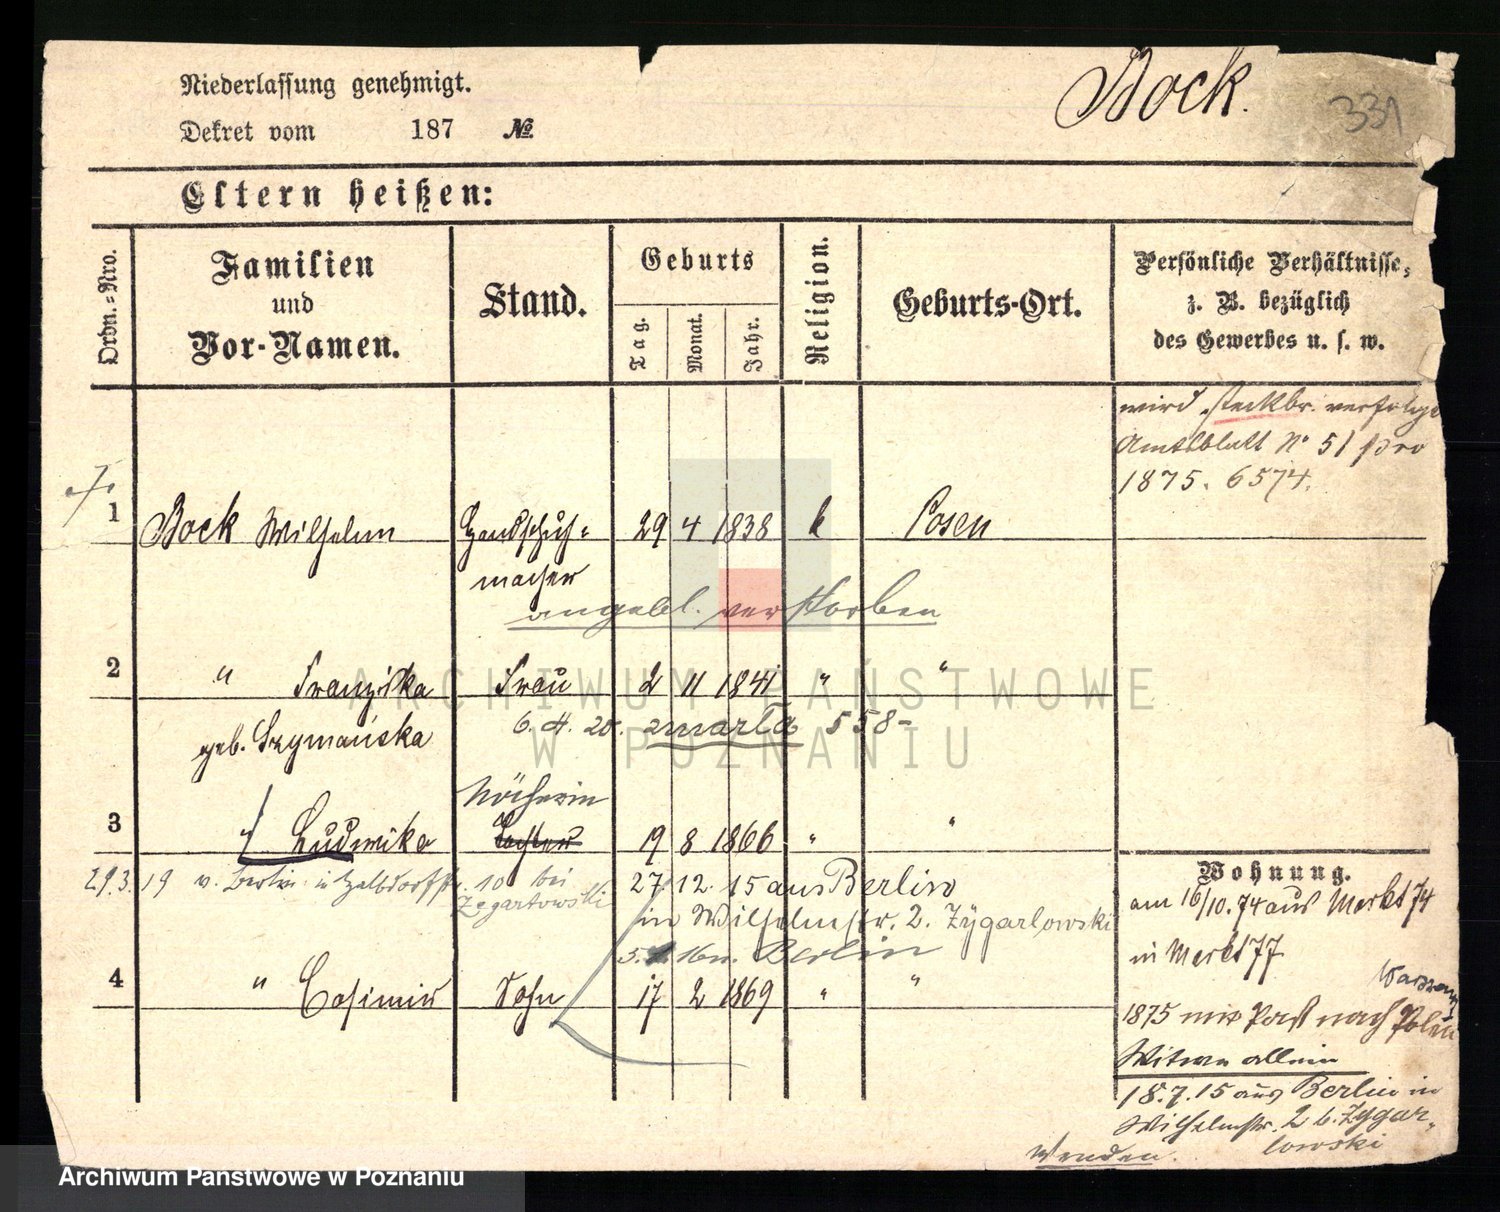 Niederlassung genehmigt.
Bock.
331
Dekret vom 187 №
Eltern heißen:
Ordn.-Nro.
Familien und Vor-Namen.
Stand.
Geburts
Tag.
Monat.
Jahr.
Religion.
Geburts-Ort.
Persönliche Verhältnisse,
z. B. bezüglich
des Gewerbes u. s. w.
wird steckbr. verfolgt
Amtsblatt No 51 pro
1875. 6574.
1 Bock Wilhelm Handschuh= 29 4 1838 k Posen
macher
angebl. verstorben
2 " Franziska Frau 2 11 1841 " "
geb. Szymańska 6. 4. 20. zmarła 558-
Näherin
3 " Ludwika Tochter 19 8 1866 " "
29.3.19 v. Berlin 10 bei Zegartowski
27 12. 15 aus Berlin
in Wilhelmstr. 2. Zygarlowski
Berlin
4 " Casimir Sohn 17 2 1869 " "
Wohnung.
am 16/10.74 aus Markt 74
in Markt 77
Warszawy
1875 mit Paß nach Polen
Witwe allein
18.7.15 aus Berlin in
Wilhelmstr. 2 b. Zygar-
lowski
Wenden.
ARCHIWUM PAŃSTWOWE
W POZNANIU
Archiwum Panstwowe w Poznaniu